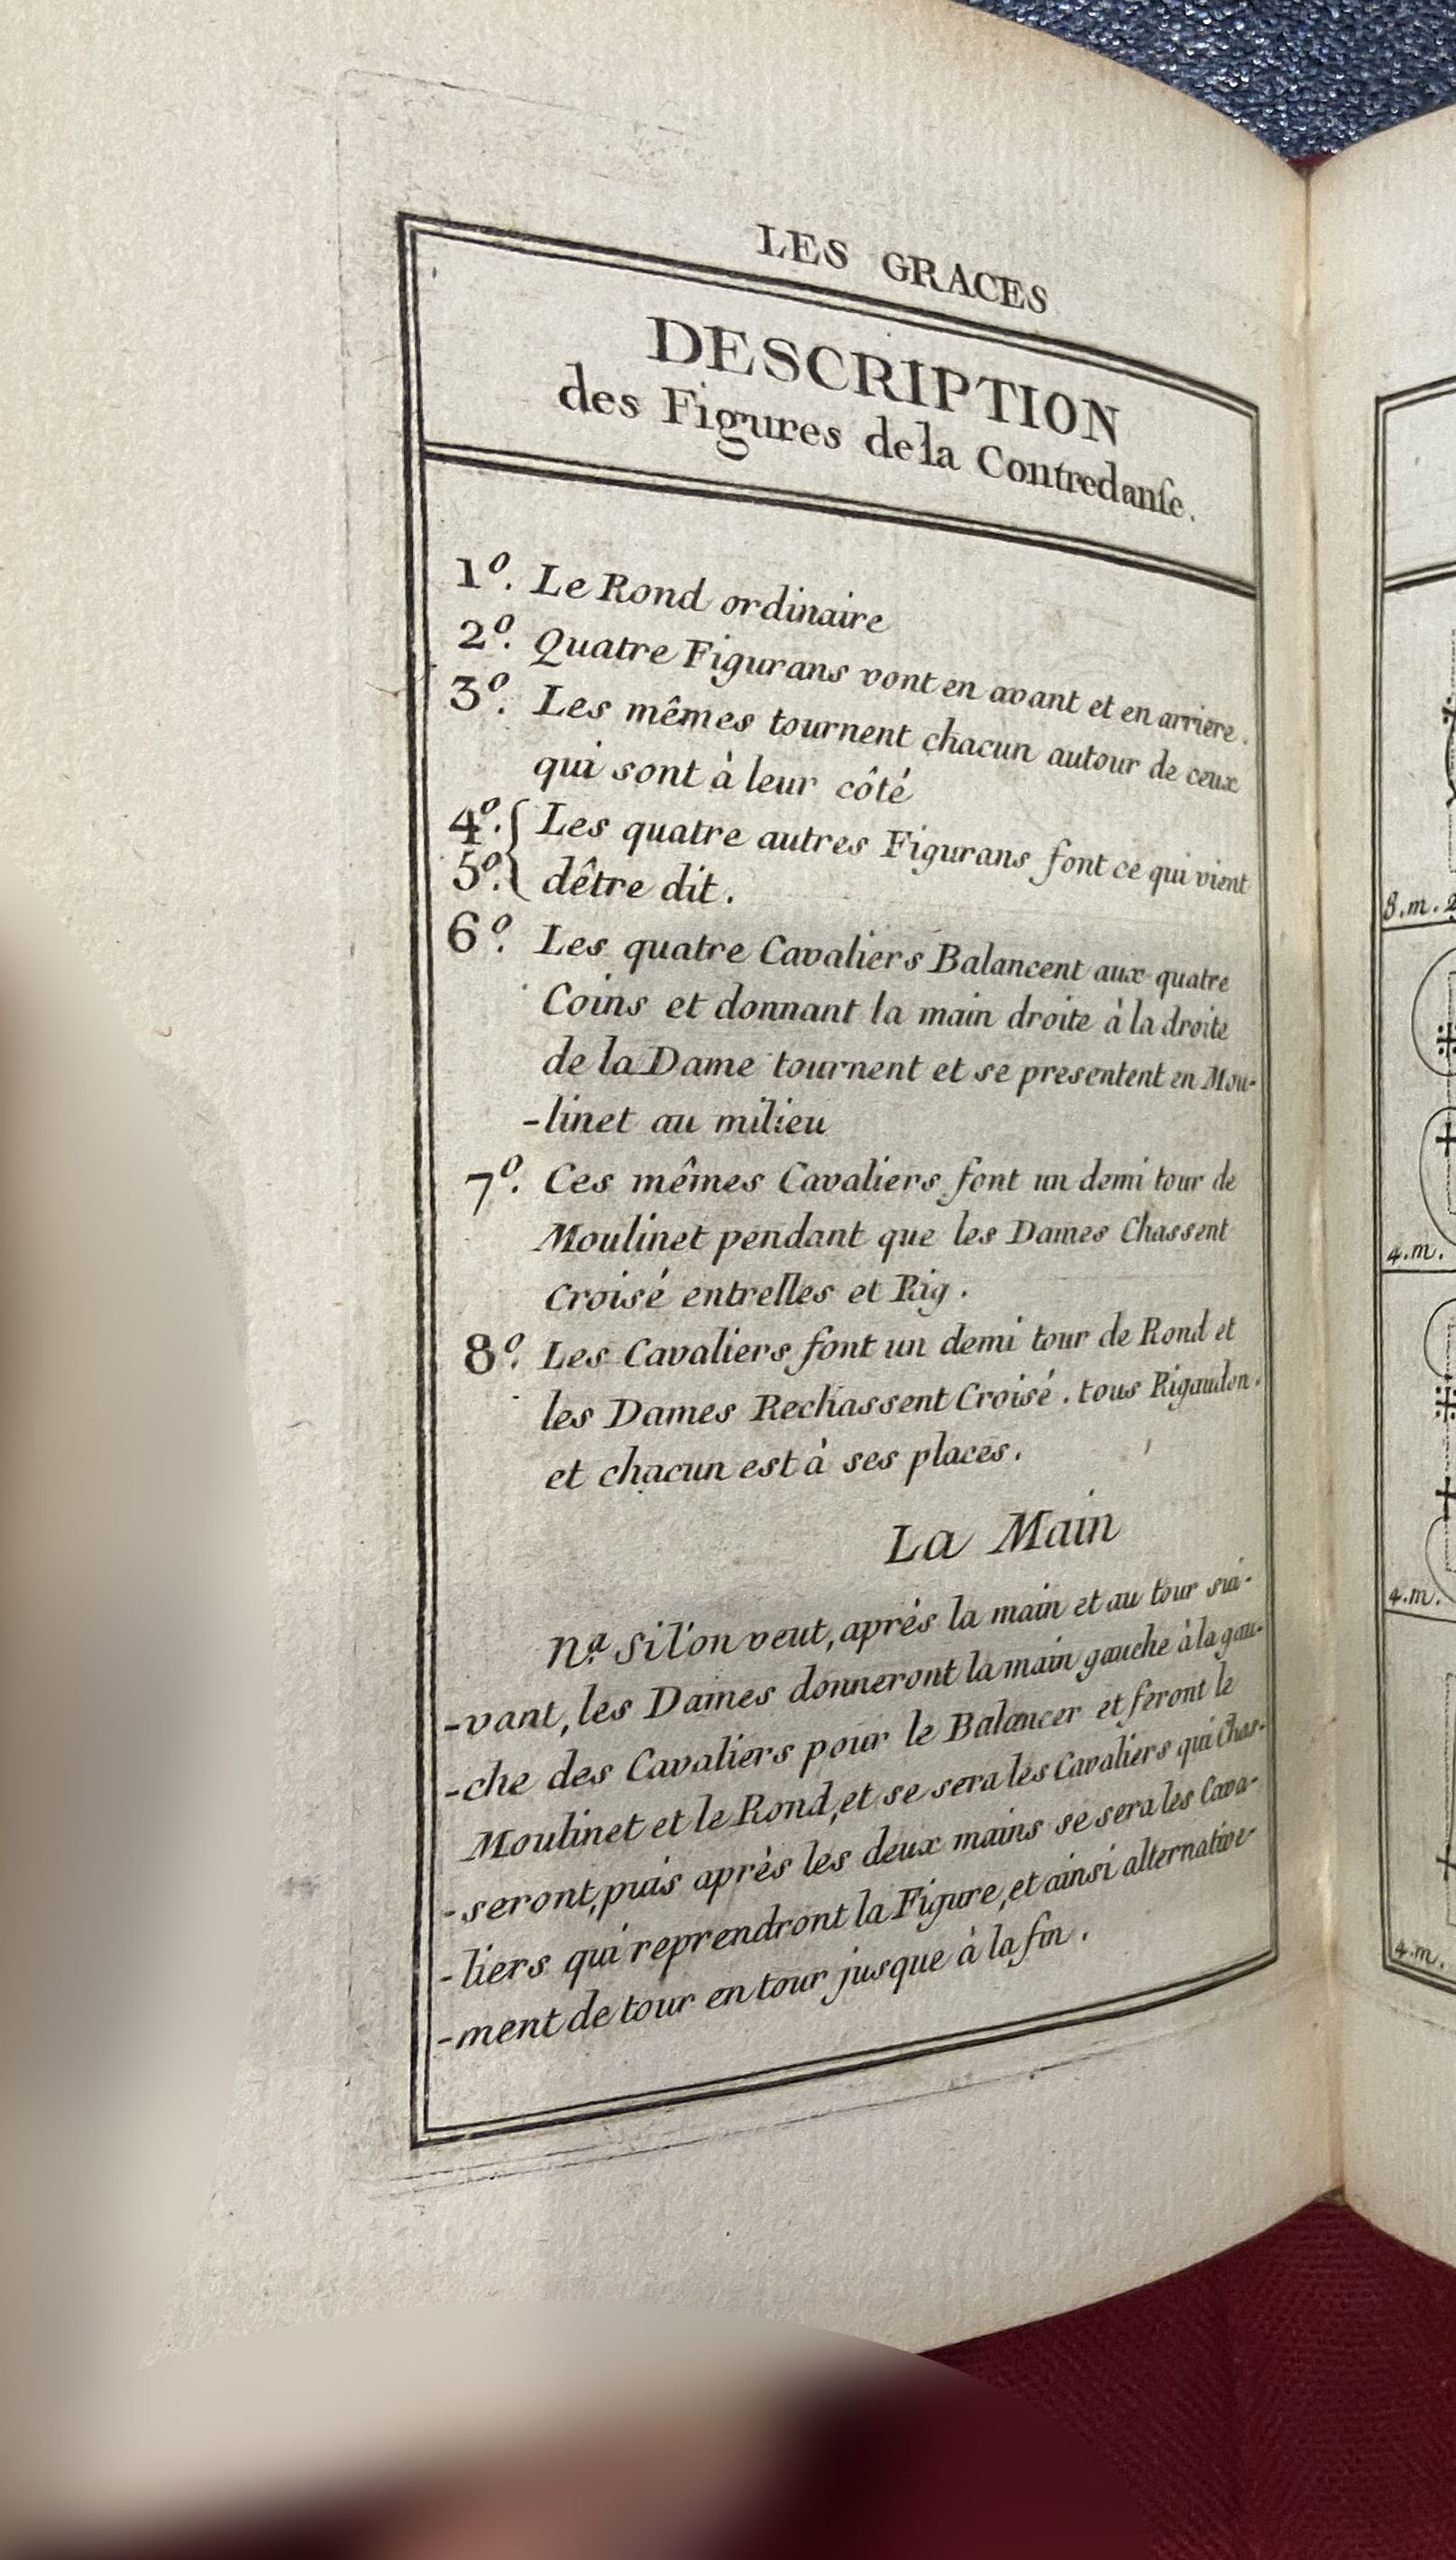 LES GRACES
DESCRIPTION
des Figures de la Contredanſe.
1º. Le Rond ordinaire
2º. Quatre Figurans vont en avant et en arriere.
3º. Les mêmes tournent chacun autour de ceux
qui sont à leur côté
4º. { Les quatre autres Figurans font ce qui vient
5º. { dêtre dit.
6º. Les quatre Cavaliers Balancent aux quatre
Coins et donnant la main droite à la droite
de la Dame tournent et se presentent en Mou-
-linet au milieu
7º. Ces mêmes Cavaliers font un demi tour de
Moulinet pendant que les Dames Chassent
Croisé entrelles et Rig.
8º. Les Cavaliers font un demi tour de Rond et
les Dames Rechassent Croisé. tous Rigaudon.
et chacun est à ses places.
La Main
Nª. Si l'on veut, aprés la main et au tour sui-
-vant, les Dames donneront la main gauche à la gau-
-che des Cavaliers pour le Balancer et feront le
Moulinet et le Rond, et se sera les Cavaliers qui Chas-
-seront, puis après les deux mains se sera les Cava-
-liers qui reprendront la Figure, et ainsi alternative-
-ment de tour en tour jusque à la fin.
8.m. 2
4.m.
4.m.
4.m.